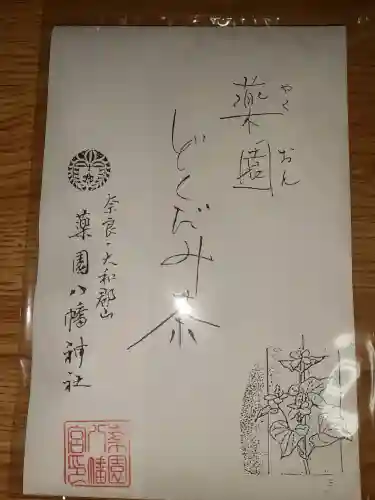 薬園
やく
おん
どくだみ茶
奈良・大和郡山
薬園八幡神社
薬園
八幡
宮印